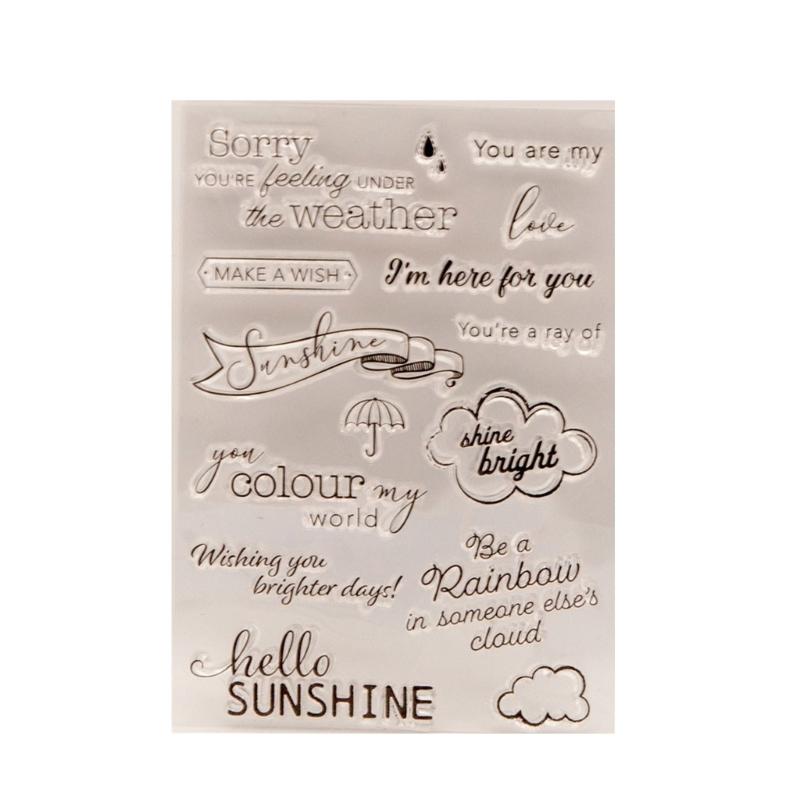 Sorry
YOU'RE feeling UNDER
the weather
You are my
love
MAKE A WISH
I'm here for you
You're a ray of
Sunshine
shine
bright
you
colour my
world
Wishing you
brighter days!
Be a
Rainbow
in someone else's
cloud
hello
SUNSHINE